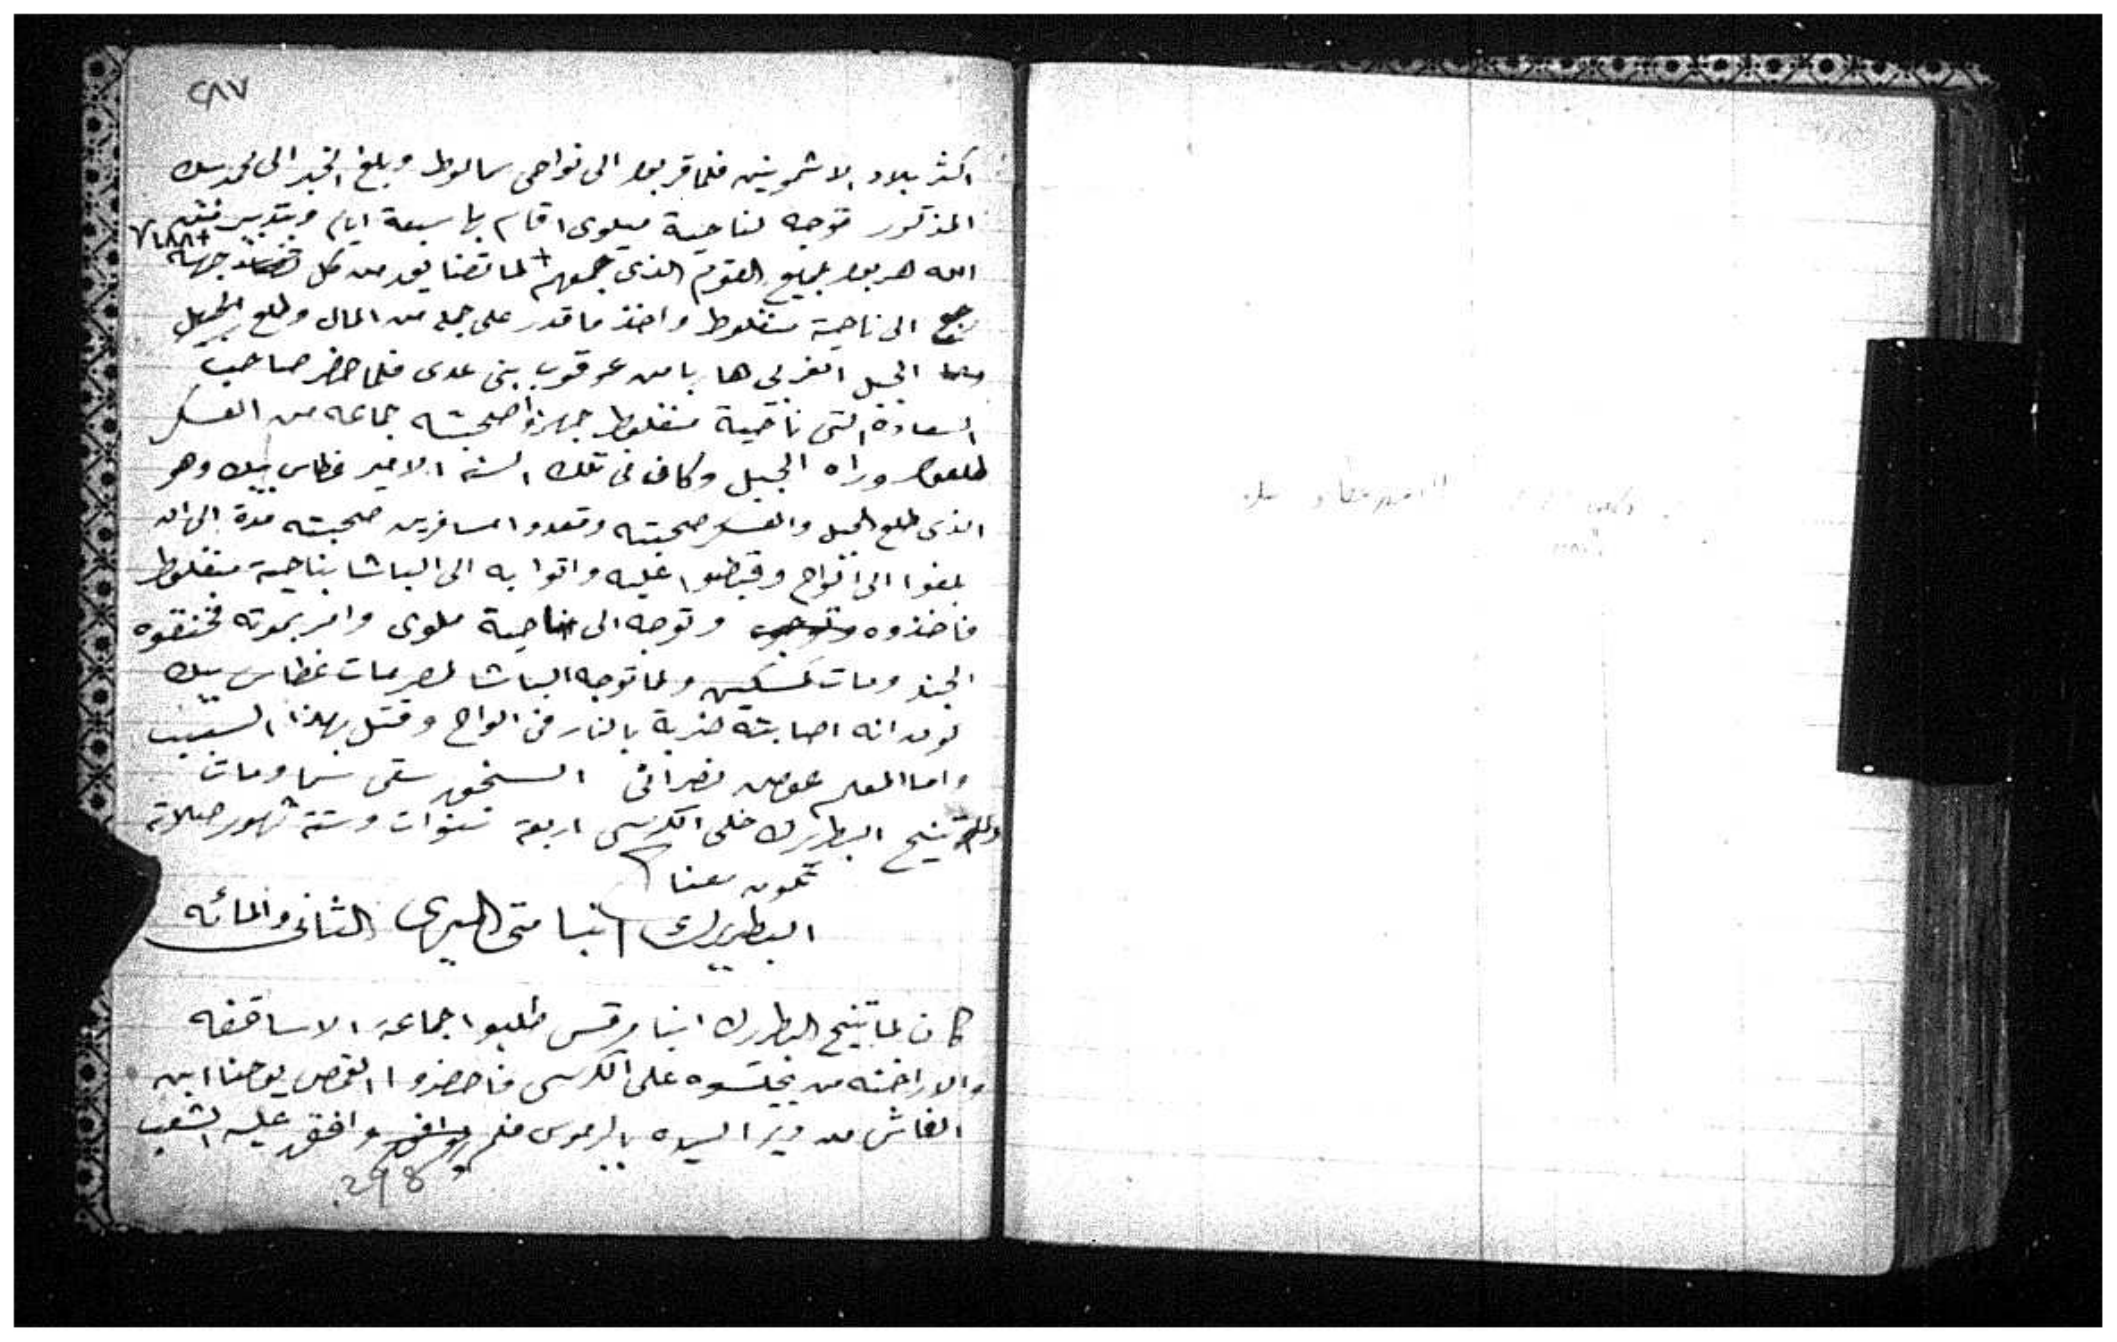 ٢٨٧
اكثر بلاد الاشمونين فلما قربوا الى نواحى سمالوط وبلغ الخبر الى محمد بيك
المذكور توجه لناحية ميلوى اقام بها سبعة ايام وبتدبير من
الله هربوا جميع القوم الذى جمعهم + لما تضايق من كل جهة
رجع الى ناحية منفلوط واخذ ما قدر على حمله من المال وطلع
الجبل الغربى هاربا من عرقوب بنى عدى فلما حضر صاحب
السعادة التى ناحية منفلوط جهزوا صحبته جماعه من العسكر
طلعوا وراه الجبل وكان فى تلك السنه الامير غطاس بيك وهو
الذى طلع الجبل والعسكر صحبته وقعدوا مسافرين صحبته مدة الى ان
بلغوا الى الواح وقبضوا عليه واتوا به الى الباشا بناحية منفلوط
فاخذوه وتوجه الى ناحية ملوى وامر بموته فخنقوه
الجند ومات كمسكين ولما توجه الباشا لمصر مات غطاس بيك
لون انه اصابته ضربة بالنار فى الواح وقتل بهذا السبب
واما المعلم عوض نصرانى السنجق سقى سما ومات
تنيح البطريرك على الكرسى اربعة سنوات وستة شهور صلاته
تكون معنا
البطريرك انبا متى الميرى الثانى والمائه
كان لما تنيح البطرك انبا مرقس طلبوا جماعة الاساقفه
والاراخنه من يجلسوه على الكرسى فاحضروا القمص يوحنا ابن
الفاش من دير السيده برموس فلم وافق عليه الشعب
298